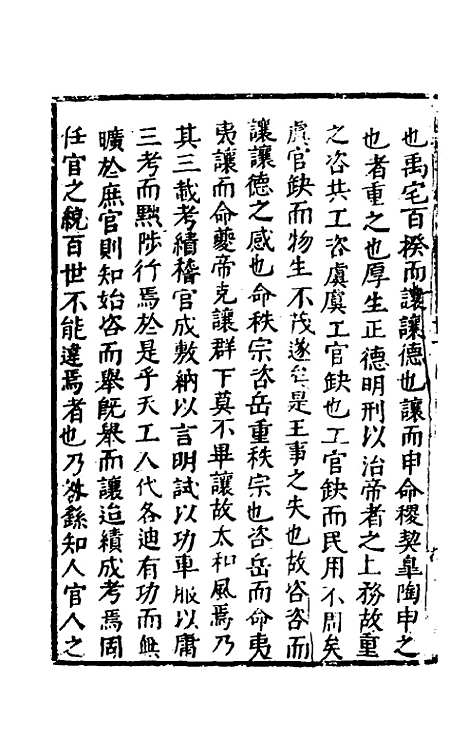 也禹宅百揆而讓讓德也讓而申命稷契臯陶申之
也者重之也厚生正德明刑以治帝者之上務故重
之咨共工咨虞虞工官缺也工官缺而民用不周矣
虞官缺而物生不茂遂矣是王事之失也故咨咨而
讓讓德之感也命秩宗咨岳重秩宗也咨岳而命夷
夷讓而命夔帝克讓群下莫不畢讓故太和風焉乃
其三載考績稽官成敷納以言明試以功車服以庸
三考而黜陟行焉於是乎天工人代各迪有功而無
曠於庶官則知始咨而舉既舉而讓迨績成考焉固
任官之統百世不能違焉者也乃咎繇知人官人之